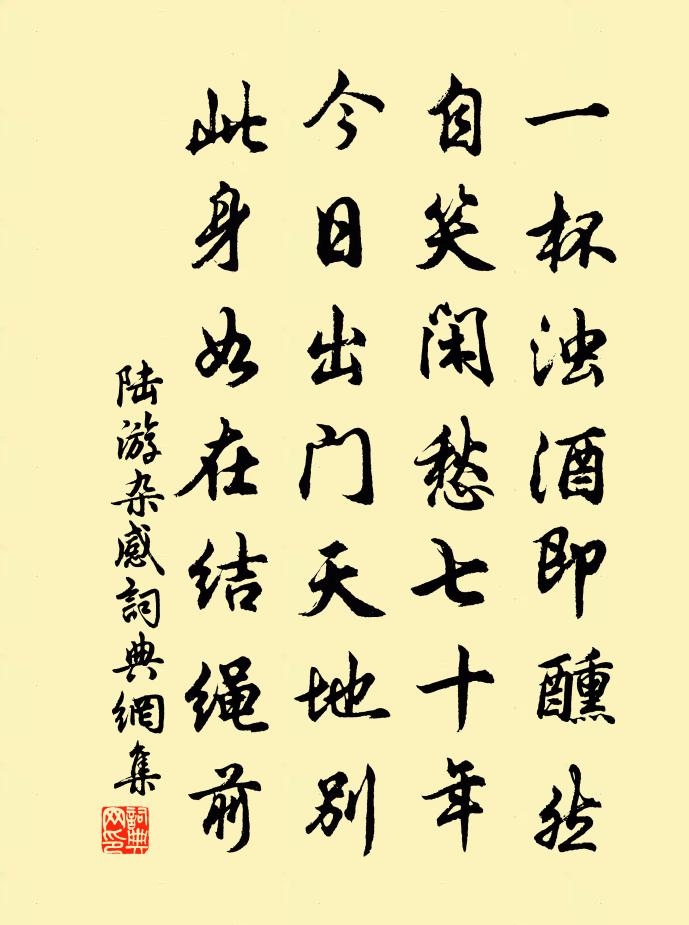 一杯浊酒即醺然
自笑闲愁七十年
今日出门天地别
此身如在结绳前
陆游杂感词典網集
詞典网印